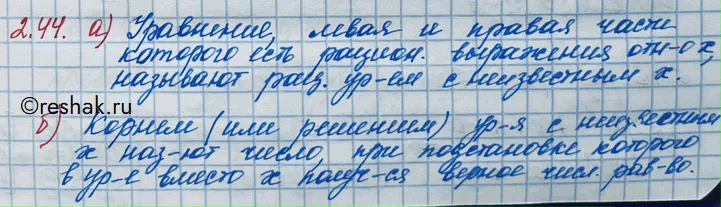 2.44. а) Уравнение, левая и правая части
которого есть рацион. выражения отн-о х,
называют рац. ур-ем с неизвестным х.
©reshak.ru
б) Корнем (или решением) ур-я с неизвестным
х наз-ют число, при подстановке которого
в ур-е вместо х получ-ся верное числ. рав-во.